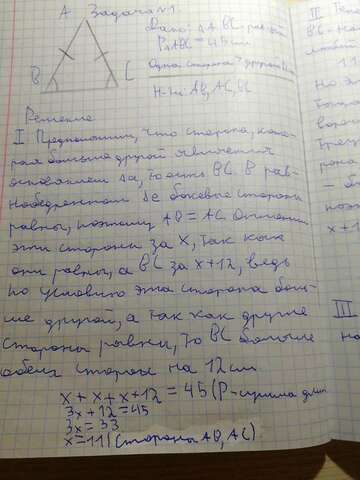 A Задача №1.
Дано: △ABC - равноб
P△ABC = 45 см
Одна сторона > другой
B C
Н-ти: AB, AC, BC
Решение
I Предположим, что сторона, кото-
рая больше другой является
основанием △а, то есть BC. В рав-
нобедренном △е боковые стороны
равны, поэтому AB = AC. Отметим
эти стороны за x, так как
они равны, а BC за x+12, ведь
по условию эта сторона боль-
ше другой, а так как другие
стороны равны, то BC больше
обеих сторон на 12 см
x + x + x + 12 = 45 (P - сумма длин
3x + 12 = 45
3x = 33
x = 11 (стороны AB, AC)
II
BC
11
x + 1
III